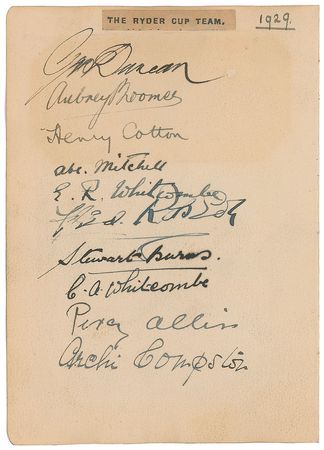 THE RYDER CUP TEAM.
1929.
Geo Duncan
Aubrey Boomer
Henry Cotton
abe. Mitchell
E. R. Whitcombe
Fred. Robson
Stewart Burns.
C. A. Whitcombe
Percy alliss
Archie Compston